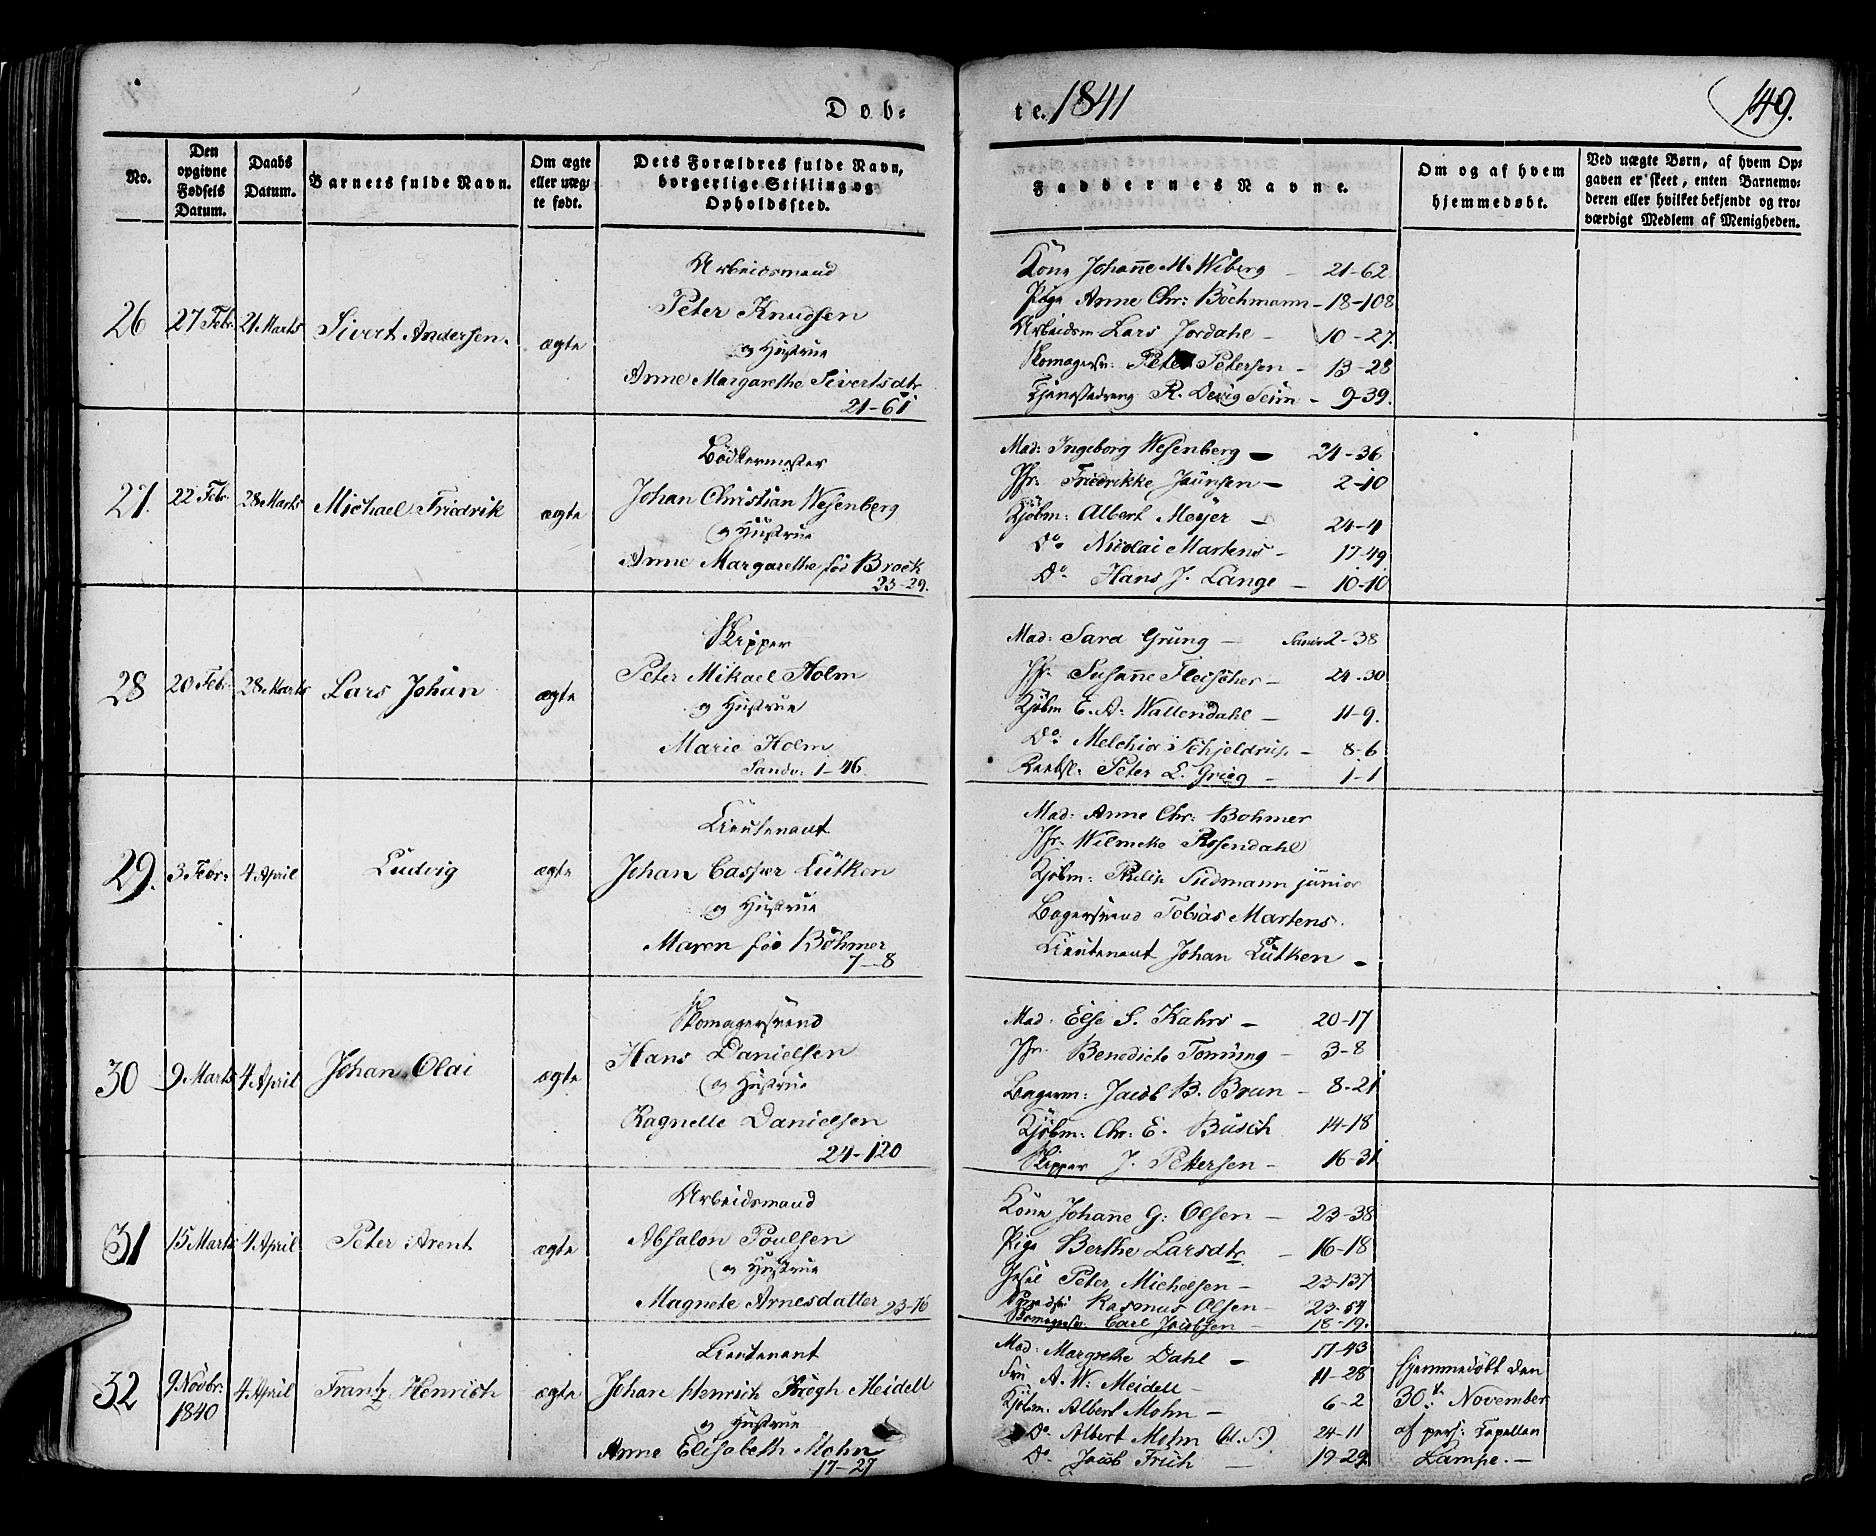 Dob-
te. 1841
149.
No.
Den opgivne Fødsels Datum.
Daabs Datum.
Barnets fulde Navn.
Om ægte eller uæg-te født.
Dets Forældres fulde Navn, borgerlige Stilling og Opholdssted.
Faddernes Navne.
Om og af hvem hjemmedøbt.
Ved uægte Børn, af hvem Op-gaven er skeet, enten Barnemo-deren eller hvilket bekjendt og tro-værdigt Medlem af Menigheden.
26
27 Febr.
21 Marts
Sivert Andersen.
ægte
Arbeidsmand
Peter Knudsen
og Hustrue
Anne Margarethe Sivertsdtr
21-61
Kone Johanne M. Wiberg - 21-62
Pige Anne Chr: Böchmann - 18-108
Arbeidsm Lars Jordahl - 10-27
Skomagersv: Peter Petersen - 13-28
Tjenestedreng R. Seim - 9-39.
27.
22 Febr.
28 Marts
Michael Friedrik
ægte
Bødkermester
Johan Christian Wesenberg
og Hustrue
Anne Margarethe fød Brock
23-29.
Mad: Ingeborg Wesenberg - 24-36
Jfr: Friedrikke Jaunsen - 2-10
Kjøbm: Albert Meyer - 24-4
Do. Nicolai Martens - 17-49
Do. Hans J. Lange - 10-10
28
20 Febr.
28 Marts
Lars Johan
ægte
Skipper
Peter Mikael Holm
og Hustrue
Marie Holm
Sandv: 1-46.
Mad: Sara Grung - Sandv 2-38
Jfr. Susanne Fleischer - 24-30
Kjøbm E. A. Wallendahl - 11-9.
Do: Melchior Schjeldrup - 8-6
Peter L. Grieg - 1-1
29.
3 Febr:
4 April
Ludvig
ægte
Lieutenant
Johan Casper Lütken
og Hustrue
Maren fød Böhmer
7-8
Mad: Anne Chr: Bohmer
Jfr: Wilmeke Rosendahl
Kjøbm: Philip Sudmann junior
Bagersvend Tobias Martens.
Lieutenant Johan Lütken -
30
9 Marts
4 April
Johan Olai
ægte
Skomagersvend
Hans Danielsen
og Hustrue
Ragnelle Danielsen
24-120
Mad: Else S. Kahrs - 20-17
Jfr. Benedicte Tonning - 3-8
Bagerm: Jacob B. Brun - 8-21
Kjøbm: Chr: E. Busch 14-18
Skipper J. Pettersen - 16-31
31
15 Marts
4 April
Peter Arent
ægte
Arbeidsmand
Absalon Poulsen
og Hustrue
Magnete Arnesdatter 23-16
Kone Johanne G: Olsen - 23-38
Pige Berthe Larsdtr - 16-18
Peter Michelsen - 23-137
Rasmus Olsen - 23-54
Skomagersv: Carl Jacobsen - 18-19.
32
9 Novbr: 1840
4 April
Frantz Henrich
ægte
Lieutenant
Johan Henrich Krogh Meidell
og Hustrue
Anne Elisabeth Mohn
17-27
Mad: Margrethe Dahl - 17-43
Fru A. W: Meidell - 11-28
Kjøbm: Albert Mohn - 6-2
Do. Albert Mohn 24-11
Do. Jacob Frich - 19-29
Hjemmedöbt den
30te November
af pers: Capellan
Lampe. -